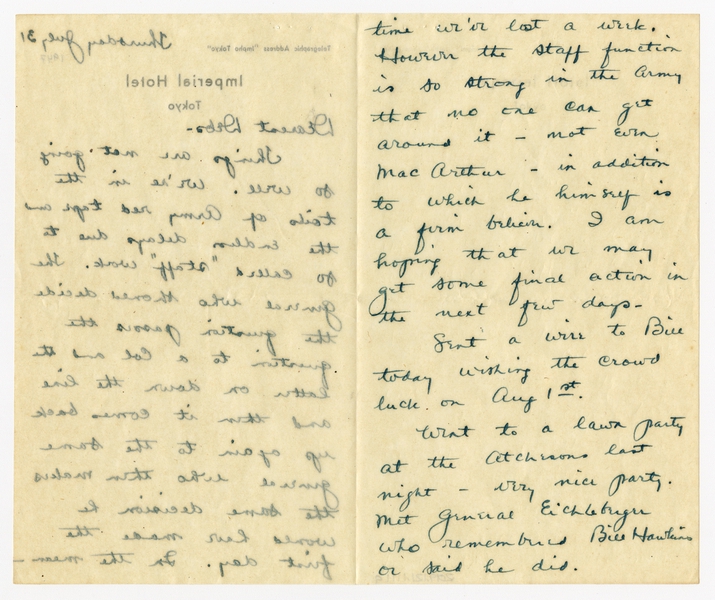 Thursday, July 31
1947
Telegraphic Address "Impho Tokyo"
Imperial Hotel
Tokyo
Dearest Debs-
Things are not going
so well. We're in the
toils of Army red tape and
the endless delays due to
so called "staff" work. The
general who should decide
the question passes the
question to a Col and the
latter on down the line
and then it comes back
up again to the same
general who then makes
the same decision he
would have made the
first day. In the mean-
time we've lost a week.
However the staff function
is so strong in the Army
that no one can get
around it - not even
MacArthur - in addition
to which he himself is
a firm believer. I am
hoping that we may
get some final action in
the next few days-
Sent a wire to Bill
today wishing the crowd
luck on Aug 1st.
Went to a lawn party
at the Atchesons last
night - very nice party.
Met General Eichleberger
who remembered Bill Hawkins
or said he did.